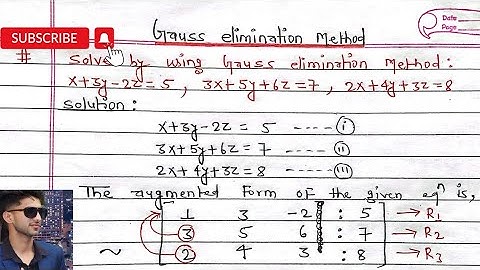 Gauss elimination Method
Date
Page
SUBSCRIBE
# Solve by using Gauss elimination Method :
x+3y-2z = 5 , 3x+5y+6z = 7 , 2x+4y+3z = 8
Solution :
x+3y-2z = 5 ----- (i)
3x+5y+6z = 7 ----- (ii)
2x+4y+3z = 8 ----- (iii)
The augmented form of the given eqn is,
[ 1 3 -2 : 5 ] → R1
3 5 6 : 7 → R2
~ 2 4 3 : 8 → R3